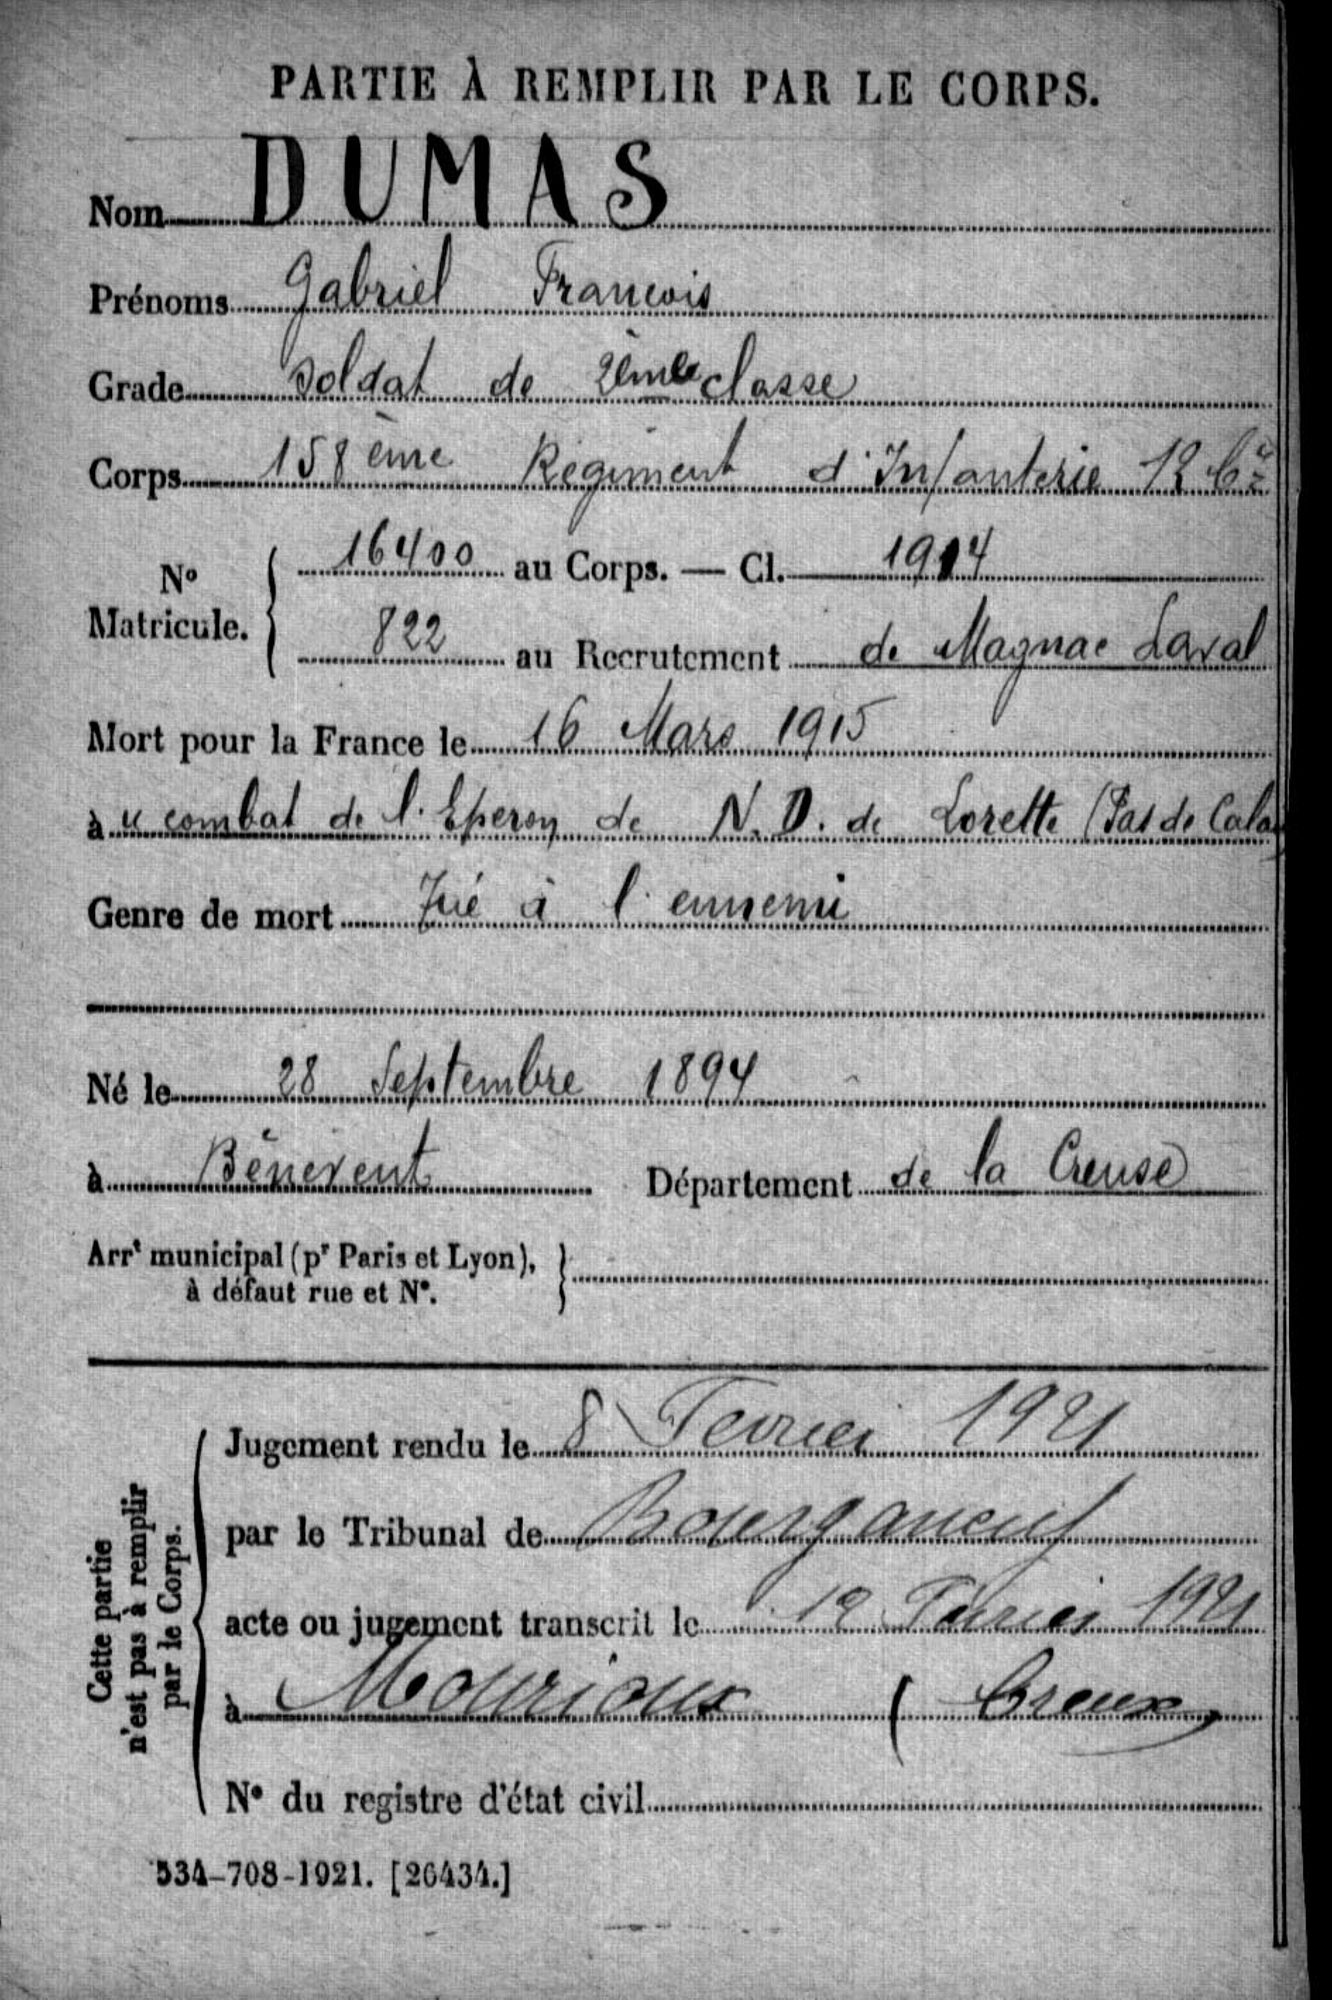 PARTIE À REMPLIR PAR LE CORPS.
Nom DUMAS
Prénoms Gabriel Francois
Grade soldat de 2ème classe
Corps 158ème Régiment d'Infanterie 12 Cie
No Matricule. { 16400 au Corps. — Cl. 1914
822 au Recrutement de Magnac Laval
Mort pour la France le 16 Mars 1915
à u combat de l'Eperon de N. D. de Lorette (Pas de Calais
Genre de mort Tué à l'ennemi
Né le 28 Septembre 1894
à Bénévent Département de la Creuse
Arrt municipal (pr Paris et Lyon), à défaut rue et N°. }
Cette partie n'est pas à remplir par le Corps.
Jugement rendu le 8 Fevrier 1921
par le Tribunal de Bourganeuf
acte ou jugement transcrit le 12 Fevrier 1921
à Mourioux (Creuse)
N° du registre d'état civil
534-708-1921. [26434.]